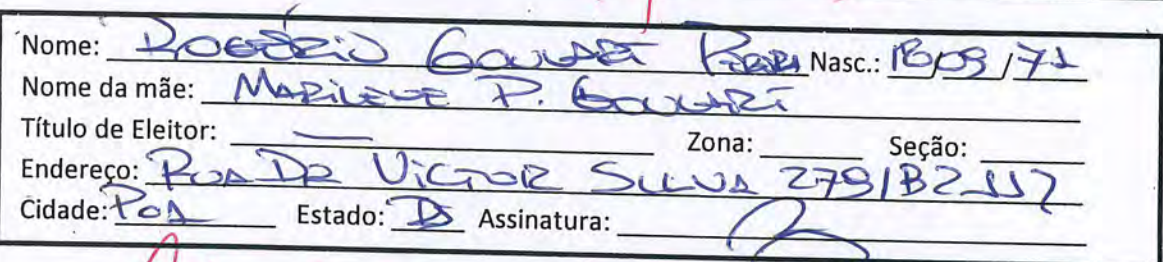 Nome: Rogério Goulart Pereira Nasc.: 18/09/71
Nome da mãe: Marilene P. Goulart
Título de Eleitor: — Zona: Seção:
Endereço: Rua Dr Victor Silva 279/B2 117
Cidade: POA Estado: RS Assinatura: